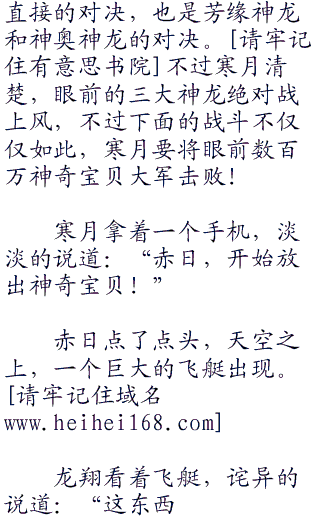 直接的对决，也是芳缘神龙
和神奥神龙的对决。[请牢记
住有意思书院]不过寒月清
楚，眼前的三大神龙绝对战
上风，不过下面的战斗不仅
仅如此，寒月要将眼前数百
万神奇宝贝大军击败！
寒月拿着一个手机，淡
淡的说道：“赤日，开始放
出神奇宝贝！”
赤日点了点头，天空之
上，一个巨大的飞艇出现。
[请牢记住域名
www.heihei168.com]
龙翔看着飞艇，诧异的
说道：“这东西